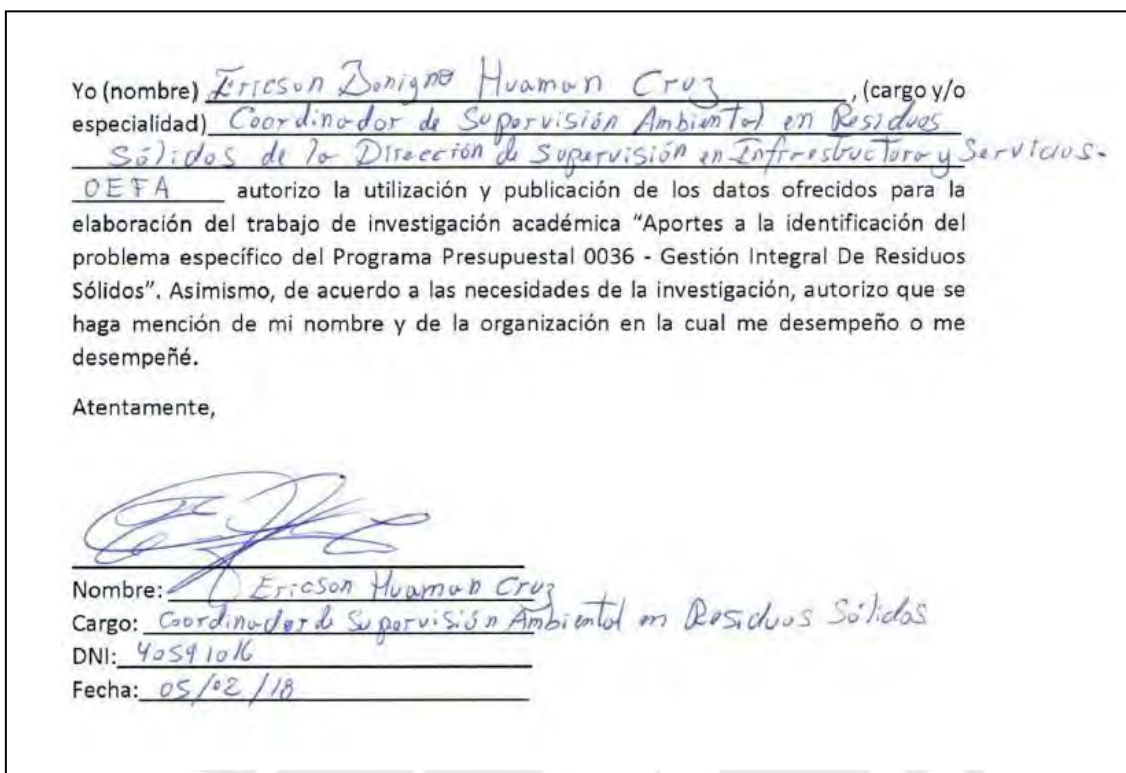 Yo (nombre) Ericson Benigno Huaman Cruz, (cargo y/o
especialidad) Coordinador de Supervisión Ambiental en Residuos
Sólidos de la Dirección de Supervisión en Infraestructura y Servicios-
OEFA autorizo la utilización y publicación de los datos ofrecidos para la
elaboración del trabajo de investigación académica “Aportes a la identificación del
problema específico del Programa Presupuestal 0036 - Gestión Integral De Residuos
Sólidos”. Asimismo, de acuerdo a las necesidades de la investigación, autorizo que se
haga mención de mi nombre y de la organización en la cual me desempeño o me
desempeñé.
Atentamente,
Nombre: Ericson Huaman Cruz
Cargo: Coordinador de Supervisión Ambiental en Residuos Sólidos
DNI: 40591016
Fecha: 05/02/18